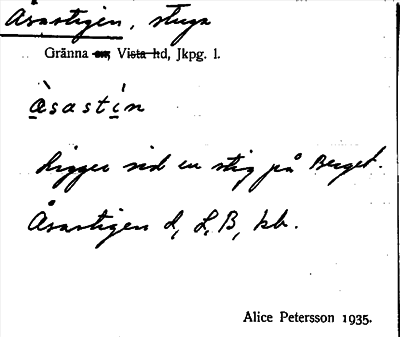 Åsastigen, stuga
Gränna sn, Vista hd, Jkpg. l.
àsastín
Ligger vid en stig på Berget.
Åsastigen d, L, B, kb.
Alice Petersson 1935.